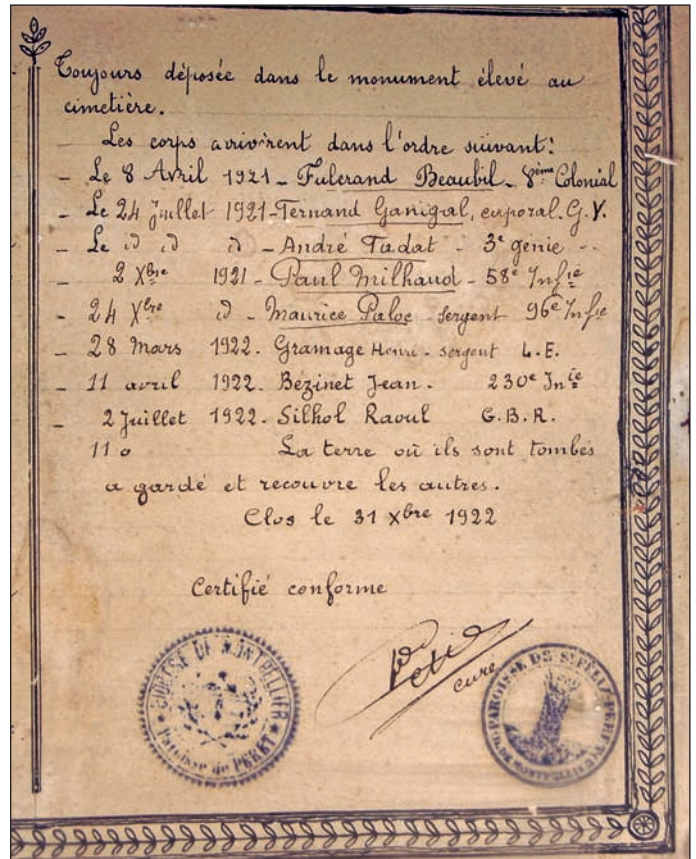 Toujours déposée dans le monument élevé au
cimetière.
Les corps arrivèrent dans l'ordre suivant:
- Le 8 Avril 1921 - Fulcrand Beaubil - 8ème Colonial
- Le 24 Juillet 1921 - Fernand Ganigal, caporal. G. V.
- Le id id id - André Tadat - 3e génie --
- 2 Xbre 1921 - Paul Milhaud - 58e Infie
- 24 Xbre id - Maurice Paloc - sergent 96e Infie
- 28 Mars 1922. Gramage Henri - sergent L.E.
- 11 avril 1922. Bézinet Jean. 230e Inie
- 2 Juillet 1922. Silhol Raoul G.B.R.
11 o La terre où ils sont tombés
a gardé et recouvre les autres.
Clos le 31 Xbre 1922
Certifié conforme
curé
DIOCESE DE MONTPELLIER
Paroisse de PERET
PAROISSE DE ST FELIX